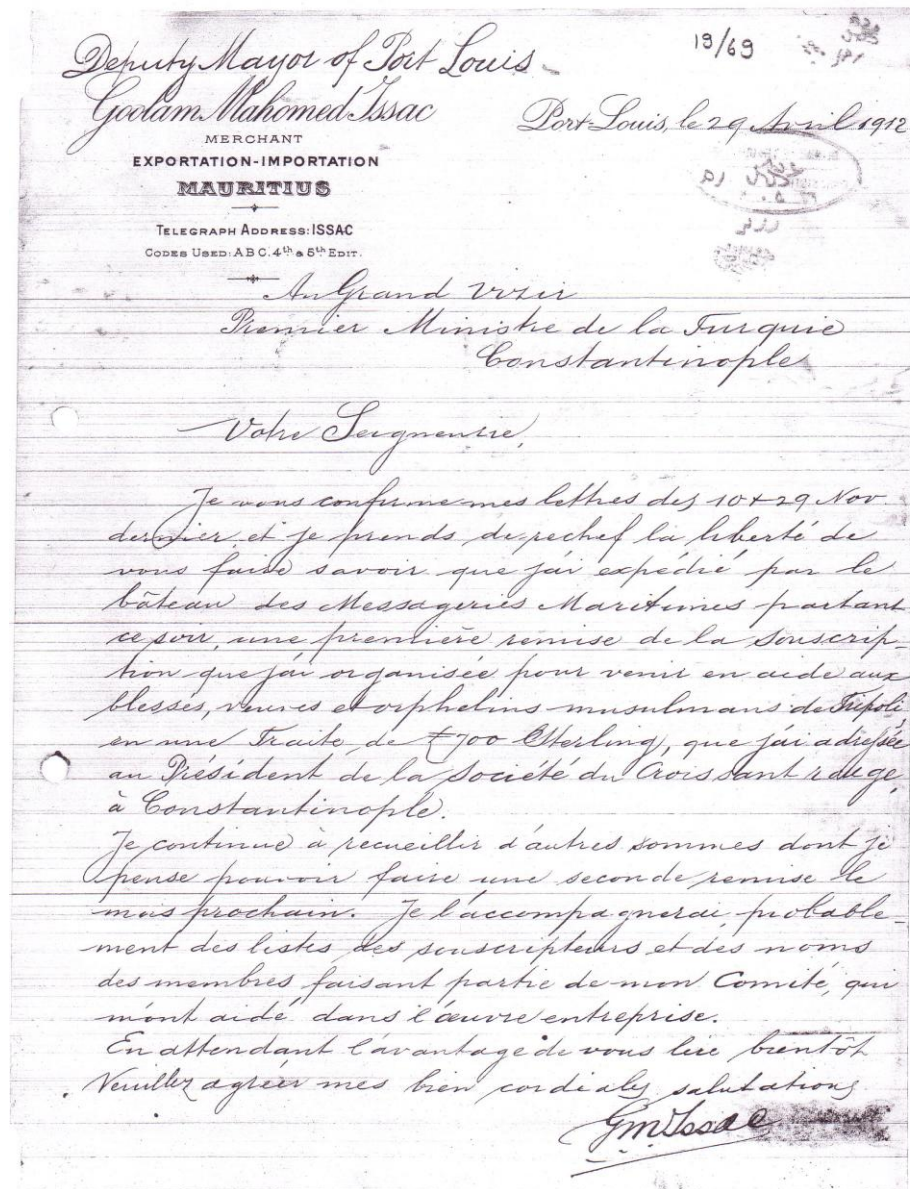 Deputy Mayor of Port Louis
Goolam Mahomed Issac
MERCHANT
EXPORTATION-IMPORTATION
MAURITIUS
TELEGRAPH ADDRESS: ISSAC
CODES USED: A B C. 4th & 5th EDIT.
19/69
Port-Louis, le 29 Avril 1912
Au Grand Vizir
Premier Ministre de la Turquie
Constantinople
Votre Seigneurie,
Je vous confirme mes lettres des 10 & 29 Nov
dernier et je prends derechef la liberté de
vous faire savoir que j'ai expédié par le
bâteau des Messageries Maritimes partant
ce soir, une première remise de la souscrip-
tion que j'ai organisée pour venir en aide aux
blessés, veuves et orphelins musulmans de Tripoli
en une Traite de £700 Sterling, que j'ai adressée
au Président de la Société du Croissant rouge,
à Constantinople.
Je continue à recueillir d'autres sommes dont je
pense pouvoir faire une seconde remise le
mois prochain. Je l'accompagnerai probable-
ment des listes des souscripteurs et des noms
des membres faisant partie de mon Comité, qui
m'ont aidé dans l'œuvre entreprise.
En attendant l'avantage de vous lire bientôt
Veuillez agréer mes bien cordiales salutations
GMIssac